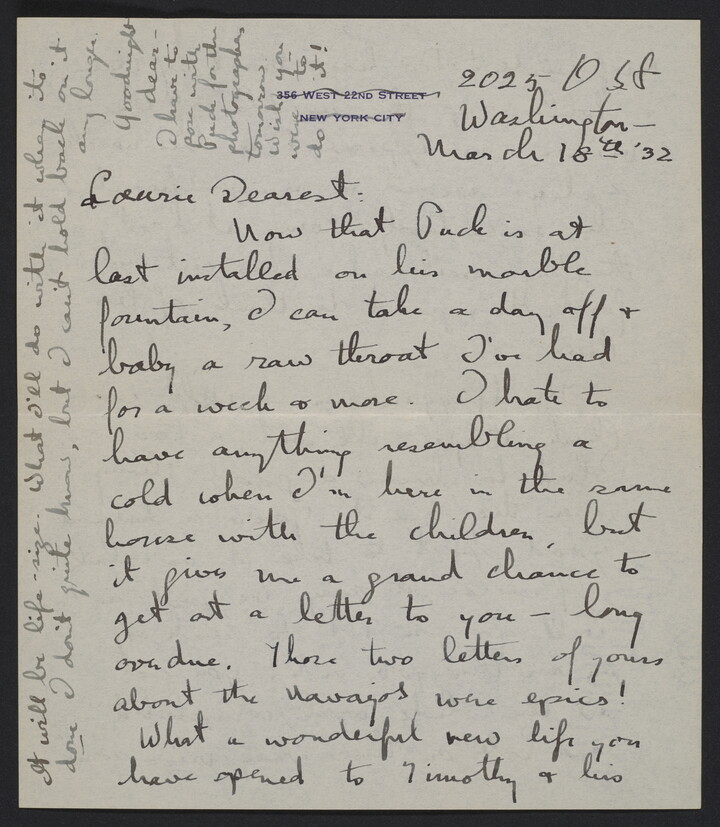 356 WEST 22ND STREET
NEW YORK CITY
2025 O St
Washington –
March 18th '32
Laurie Dearest:
Now that Puck is at
last installed on his marble
fountain, I can take a day off &
baby a raw throat I've had
for a week or more. I hate to
have anything resembling a
cold when I'm here in the same
house with the children, but
it gives me a grand chance to
get at a letter to you – long
overdue. Those two letters of yours
about the Navajos were epics!
What a wonderful new life you
have opened to Timothy & his
It will be life-size. What I'll do with it when it's
done I don't quite know, but I can't hold back on it
any longer.
Goodnight
dear –
I have to
pose with
Puck for the
photographers
tomorrow.
Wish you
were to
do it!